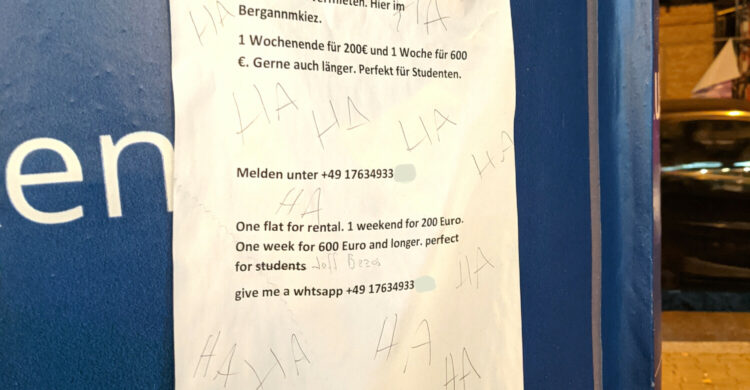 vermieten. Hier im
HA
HA
Bergannmkiez.
1 Wochenende für 200€ und 1 Woche für 600
€. Gerne auch länger. Perfekt für Studenten.
HA HA HA
HA
en
Melden unter +49 17634933
HA
One flat for rental. 1 weekend for 200 Euro.
One week for 600 Euro and longer. perfect
for students Jeff Bezos
HA
give me a whtsapp +49 17634933
HA HA HA HA